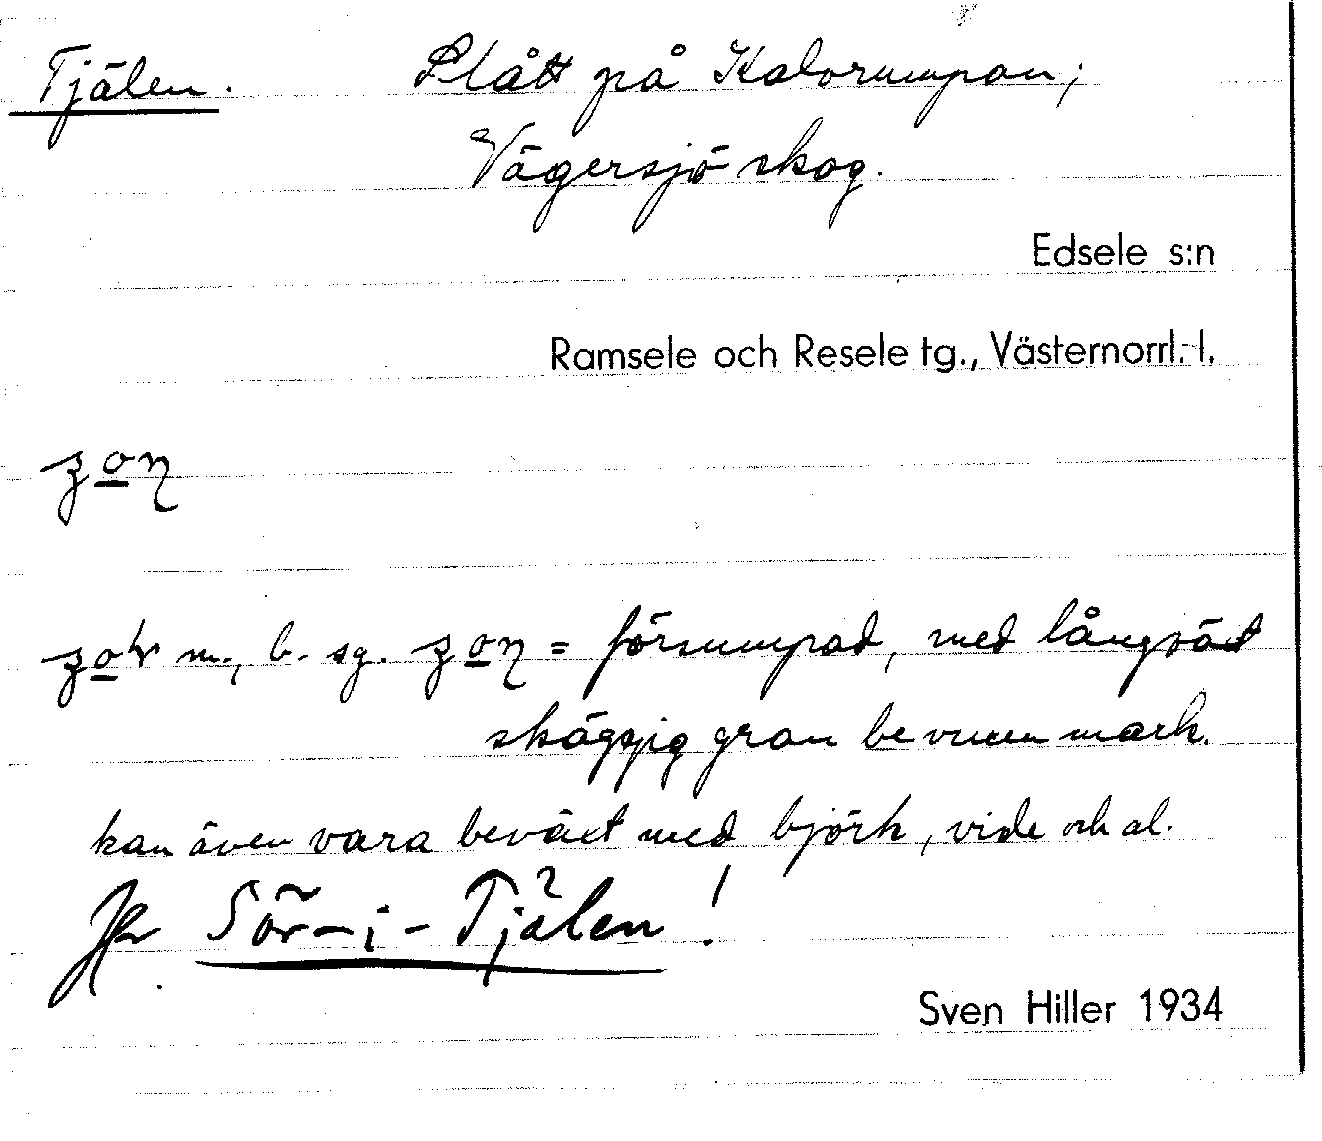 Tjälen. Slått på Kalvrumpan;
Vägersjö skog.
Edsele s:n
Ramsele och Resele tg., Västernorrl. l.
m., b. sg. = försumpad, med långväxt
skäggig gran bevuxen mark.
kan även vara beväxt med björk, vide och al.
Jfr Sör-i-Tjälen!
Sven Hiller 1934